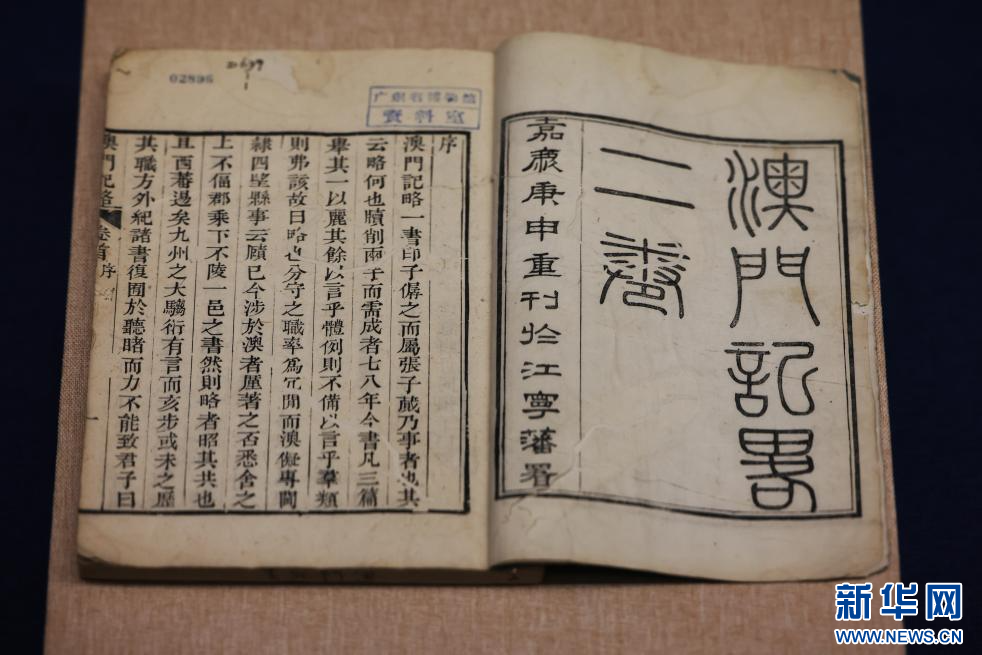 澳門記畧
二卷
嘉慶庚申重刊於江寧藩署
02896
广東省博物館
資料室
序
澳門記略一書印子僝之而屬張子蕆乃事者也其
云略何也牘削兩手而需成者七八年今書凡三篇
舉其一以麗其餘以言乎體例則不備以言乎羣類
則弗該故曰略也分守之職率爲冗閒而澳儗專閫
隸四望縣事云願已今涉於澳者厪著之否悉舍之
上不偪郡乘下不陵一邑之書然則略者昭其共也
且西蕃邊矣九州之大騶衍有言而亥步或未之歷
其職方外紀諸書復囿於聽睹而力不能致君子曰
澳門記略 卷首 序
新华网
WWW.NEWS.CN